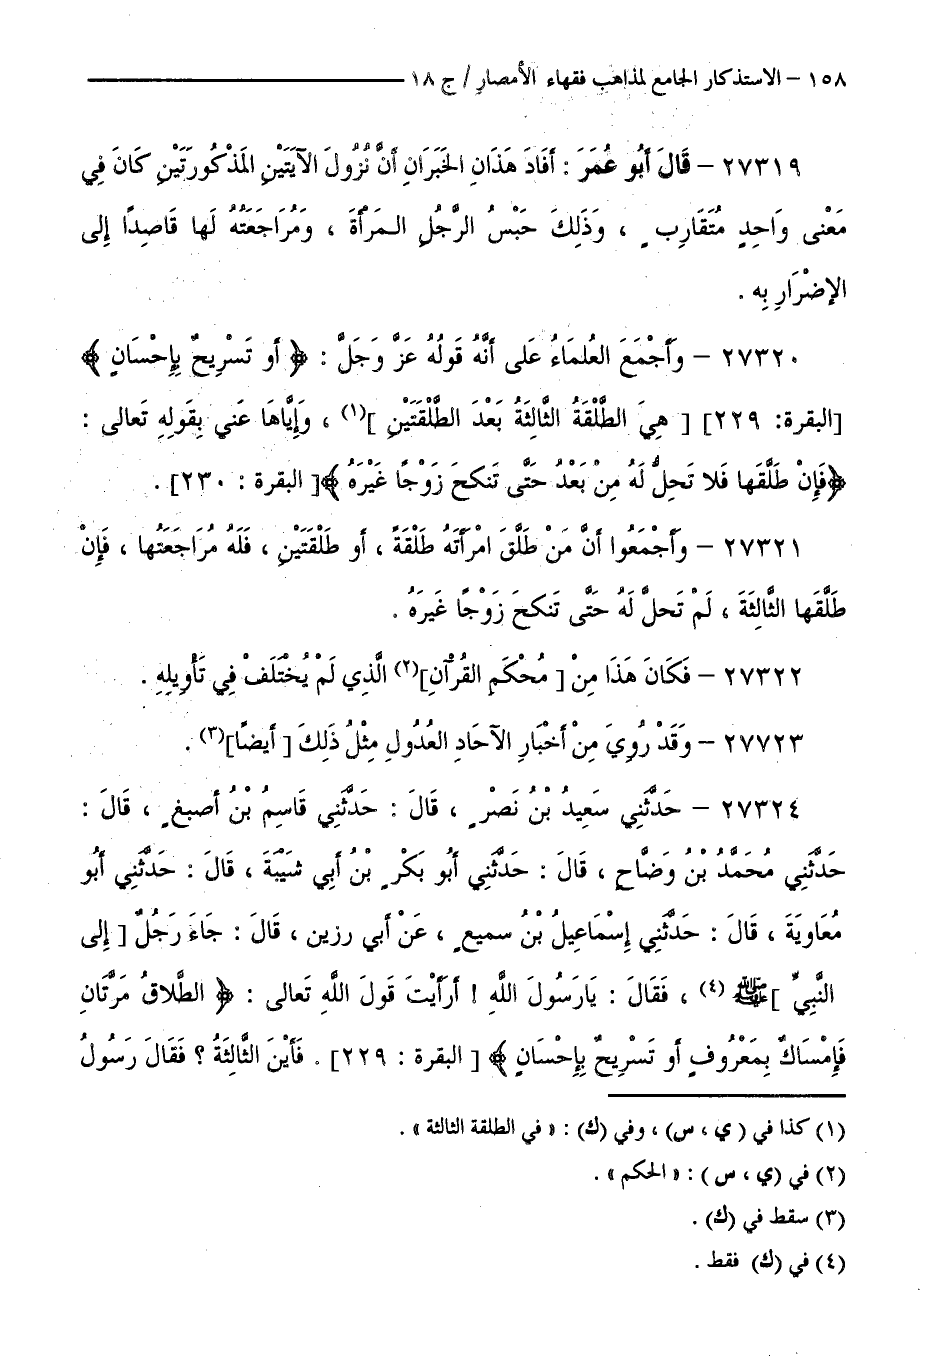 ١٥٨ – الاستذكار الجامع لمذاهب فقهاء الأمصار / ج ١٨
٢٧٣١٩ – قَالَ أَبُو عُمَرَ : أَفَادَ هَذَانِ الخَبَرَانِ أَنَّ نُزُولَ الآيَتَيْنِ المَذْكُورَتَيْنِ كَانَ فِي
مَعْنى وَاحِدٍ مُتَقَارِبٍ ، وَذَلِكَ حَبْسُ الرَّجُلِ المَرْأَةَ ، وَمُرَاجَعَتُهُ لَها قَاصِدًا إِلى
الإضْرَارِ بِه .
٢٧٣٢٠ – وَأَجْمَعَ العُلمَاءُ عَلى أَنَّهُ قَولُهُ عَزَّ وَجَلَّ : ﴿ أَو تَسْرِيحٌ بِإِحْسَانٍ ﴾
[البقرة: ٢٢٩] [ هِيَ الطَّلْقَةُ الثَّالِثَةُ بَعْدَ الطَّلْقَتَيْنِ ](١) ، وَإِيَّاهَا عَني بِقَولِهِ تَعالى :
﴿فَإِنْ طَلَّقَها فَلا تَحِلُّ لَهُ مِنْ بَعْدُ حَتَّى تَنكحَ زَوْجًا غَيْرَهُ ﴾[ البقرة : ٢٣٠] .
٢٧٣٢١ – وَأَجْمَعُوا أَنَّ مَنْ طَلَّقَ امْرأَتَه طَلْقَةً ، أَو طَلْقَتَيْنِ ، فَلَهُ مُرَاجَعَتُها ، فَإِنْ
طَلَّقَها الثَّالِثَةَ ، لَمْ تَحلَّ لَهُ حَتَّى تَنكحَ زَوْجًا غَيرَهُ .
٢٧٣٢٢ – فَكَانَ هَذَا مِنْ [ مُحْكَمِ القُرْآنِ](٢) الَّذِي لَمْ يُخْتَلَفْ فِي تَأْوِيلِهِ .
٢٧٧٢٣ – وَقَدْ رُوِيَ مِنْ أَخْبَارِ الآحَادِ العُدُولِ مِثْلُ ذَلِكَ [ أَيضًا](٣) .
٢٧٣٢٤ – حَدَّثَنِي سَعِيدُ بْنُ نَصْرٍ ، قَالَ : حَدَّثَنِي قَاسِمُ بْنُ أصبغٍ ، قَالَ :
حَدَّثَنِي مُحَمَّدُ بْنُ وَضَّاحٍ ، قَالَ : حَدَّثَنِي أَبُو بَكْرٍ بْنُ أَبِي شَيْبَةَ ، قَالَ : حَدَّثَنِي أَبُو
مُعَاوِيَةَ ، قَالَ : حَدَّثَنِي إِسْمَاعِيلُ بْنُ سميعٍ ، عَنْ أَبي رزين ، قَالَ : جَاءَ رَجُلٌ [ إِلى
النَّبِيِّ ]ﷺ (٤) ، فَقَالَ : يَارَسُولَ اللَّهِ ! أَرَأَيْتَ قَولَ اللَّهِ تَعالى : ﴿ الطَّلاقُ مَرَّتَانِ
فَإِمْسَاكٌ بِمَعْرُوفٍ أَو تَسْرِيحٌ بِإِحْسَانٍ ﴾ [ البقرة : ٢٢٩] . فَأَيْنَ الثَّالِثَةُ ؟ فَقَالَ رَسُولُ
(١) كذا في ( ي ، س) ، وفي (ك) : « في الطلقة الثالثة » .
(٢) في (ي ، س ) : « الحكم » .
(٣) سقط في (ك) .
(٤) في (ك) فقط .